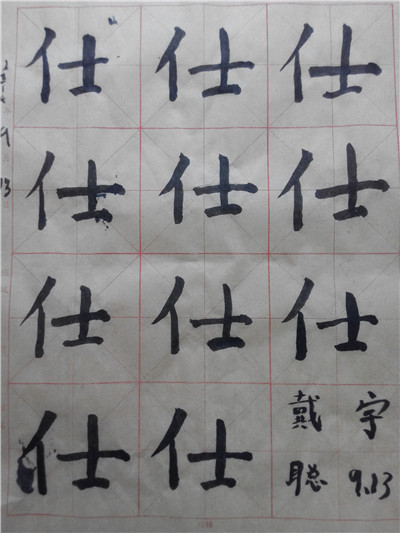 仕 仕 仕
仕 仕 仕
仕 仕 仕
仕 仕
戴聪
字 9.13
9
13